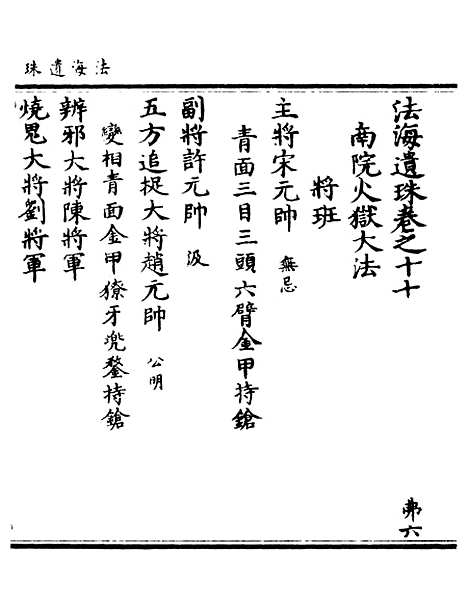 法海遺珠
法海遺珠卷之二十
弗六
南院火獄大法
將班
主將宋元帥 無忌
青面三目三頭六臂金甲持鎗
副將許元帥 汲
五方追捉大將趙元帥 公明
變相青面金甲獠牙兠鍪持鎗
辨邪大將陳將軍
燒鬼大將劉將軍